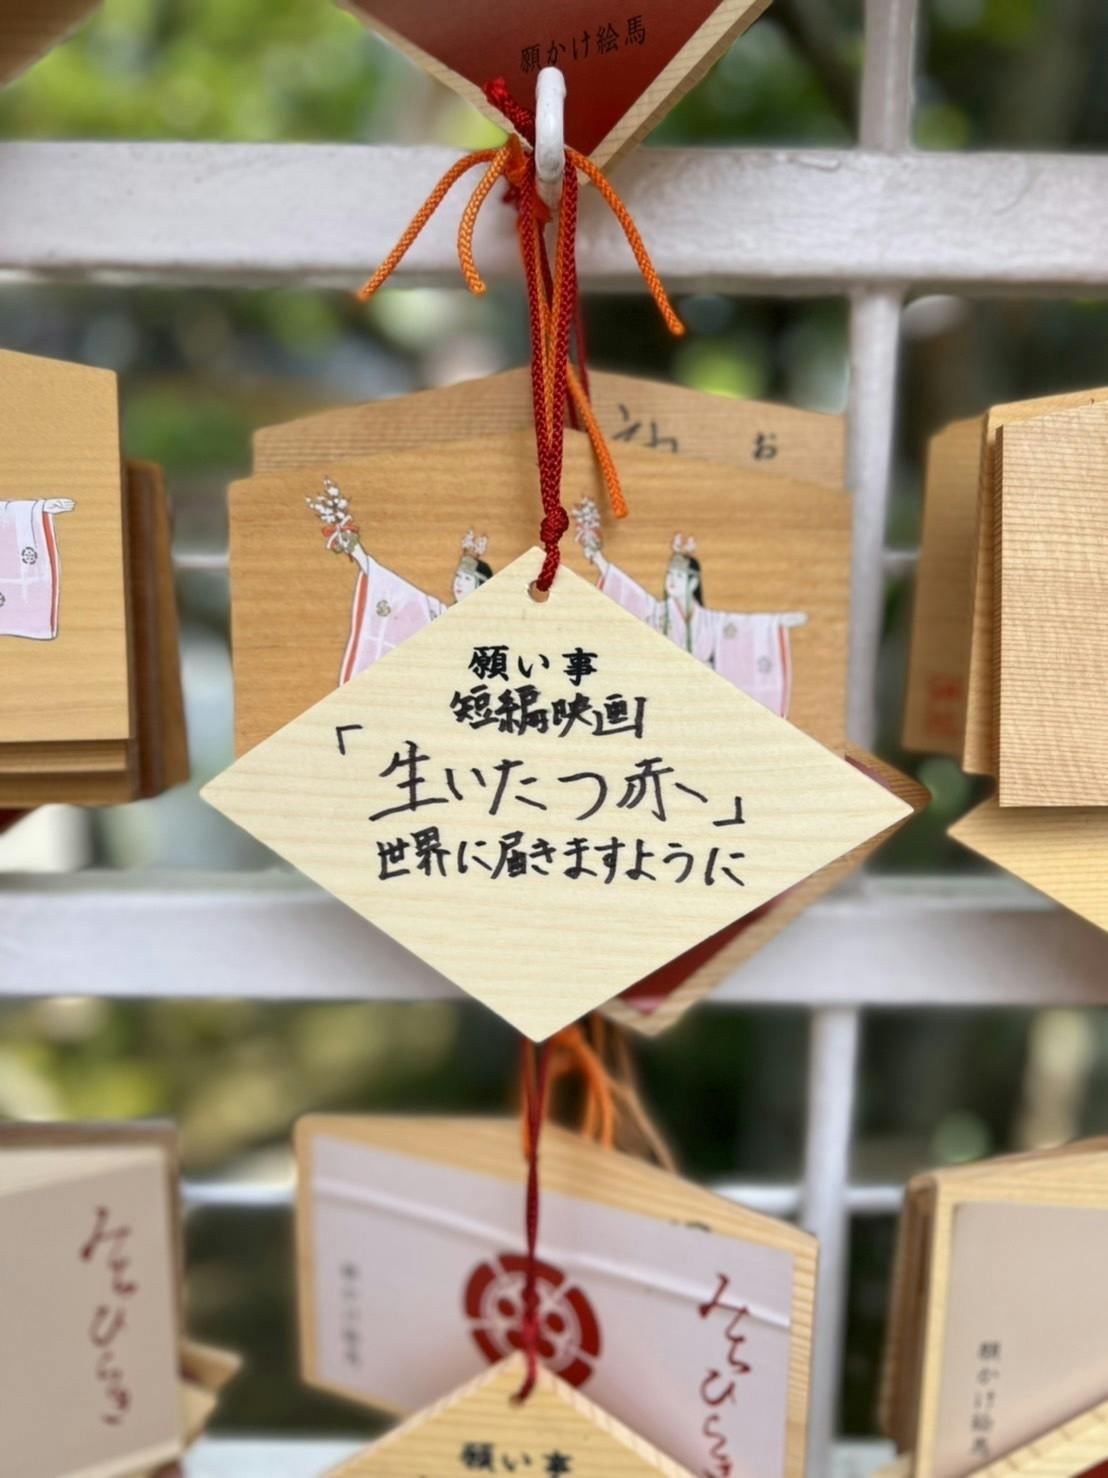 願かけ絵馬
お
願い事
短編映画
「生いたつ赤へ」
世界に届きますように
みちひらき
みちひらき
願かけ絵馬
願い事